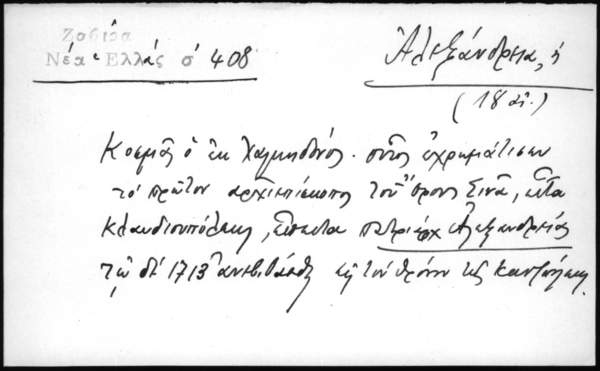 Ζαβίρα
Νέα Ἑλλάς σ 408
Ἀλεξάνδρεια, ἡ
(18 αἰ.)
Κοσμᾶς ὁ ἐκ Χαλκηδόνος. οὗτος ἐχρημάτισεν
τὸ πρῶτον ἀρχιεπίσκοπος τοῦ Ὄρους Σινᾶ, εἶτα
Κλαυδιουπόλεως, ἔπειτα πατριάρχ Ἀλεξανδρείας
τῷ δὲ 1713 ἀνεβιβάσθη εἰς τὸν θρόνον τῆς Κωνσ/πόλεως.